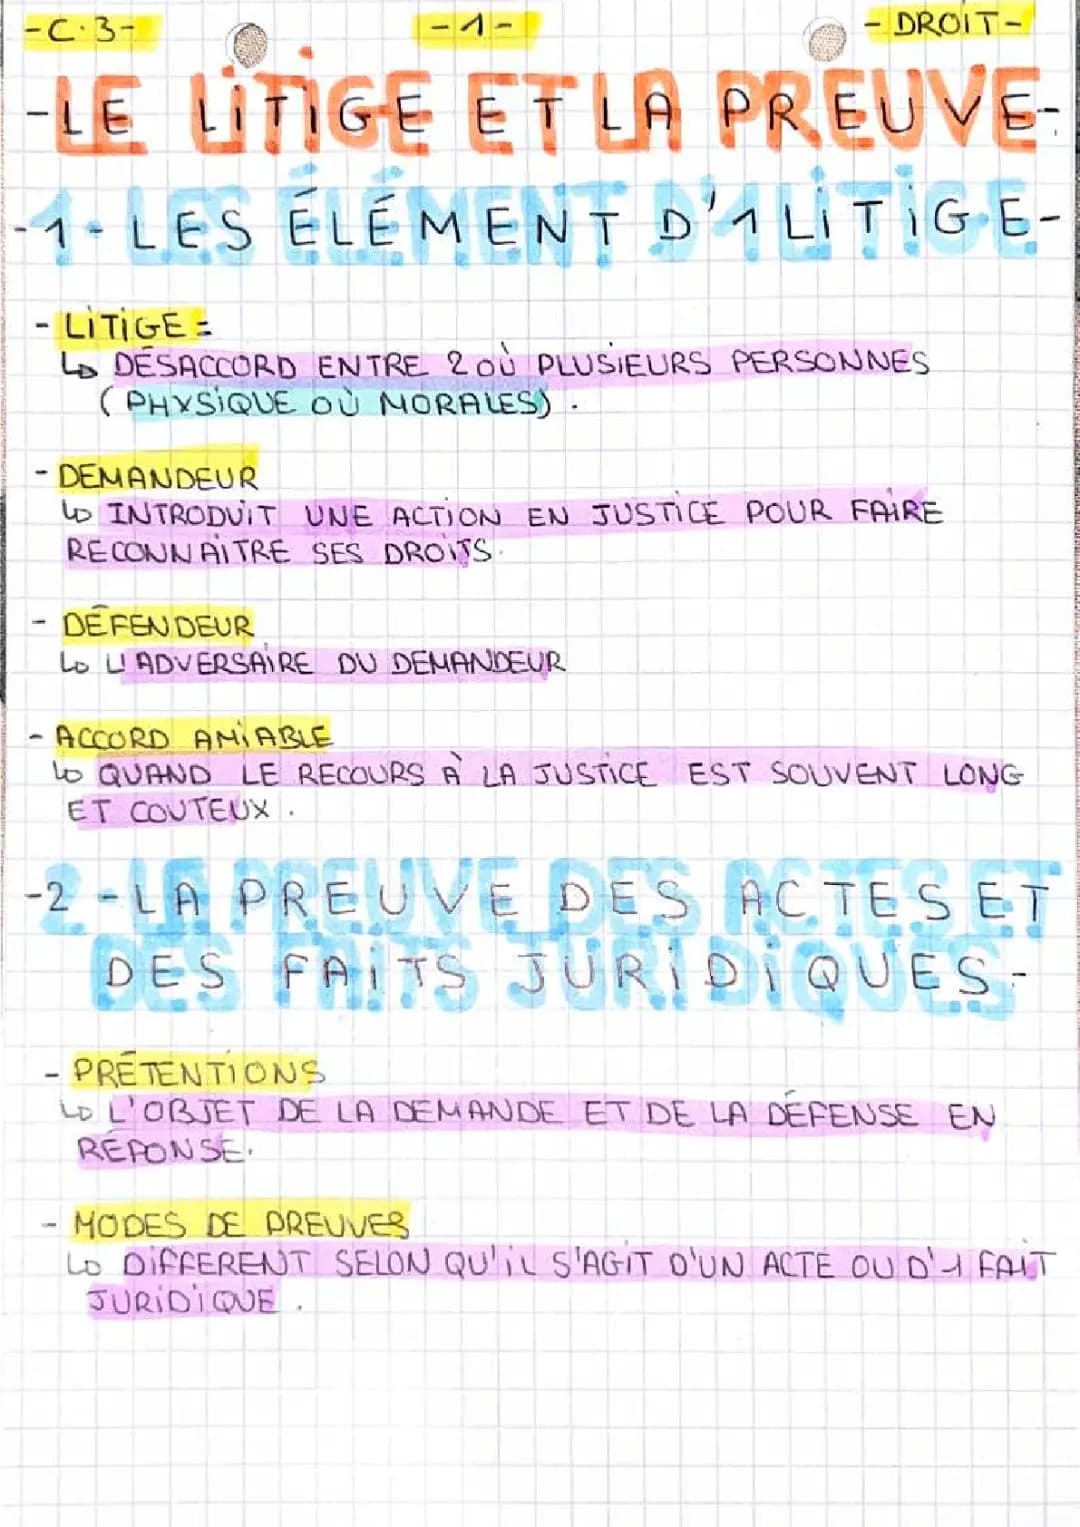 -C.3-
-1-
- DROIT-
-LE LITIGE ET LA PREUVE-
-1- LES ÉLÉMENT D'1 LITIGE-
- LITIGE =
↳ DÉSACCORD ENTRE 2 OÙ PLUSIEURS PERSONNES
( PHYSIQUE OÙ MORALES) .
- DEMANDEUR
↳ INTRODUIT UNE ACTION EN JUSTICE POUR FAIRE
RECONNAITRE SES DROITS.
- DÉFENDEUR
↳ L'ADVERSAIRE DU DEMANDEUR
- ACCORD AMIABLE
↳ QUAND LE RECOURS À LA JUSTICE EST SOUVENT LONG
ET COUTEUX .
-2 -LA PREUVE DES ACTES ET
DES FAITS JURIDIQUES-
- PRÉTENTIONS
↳ L'OBJET DE LA DEMANDE ET DE LA DÉFENSE EN
RÉPONSE.
- MODES DE PREUVES
↳ DIFFERENT SELON QU'IL S'AGIT D'UN ACTE OU D'1 FAIT
JURIDIQUE .